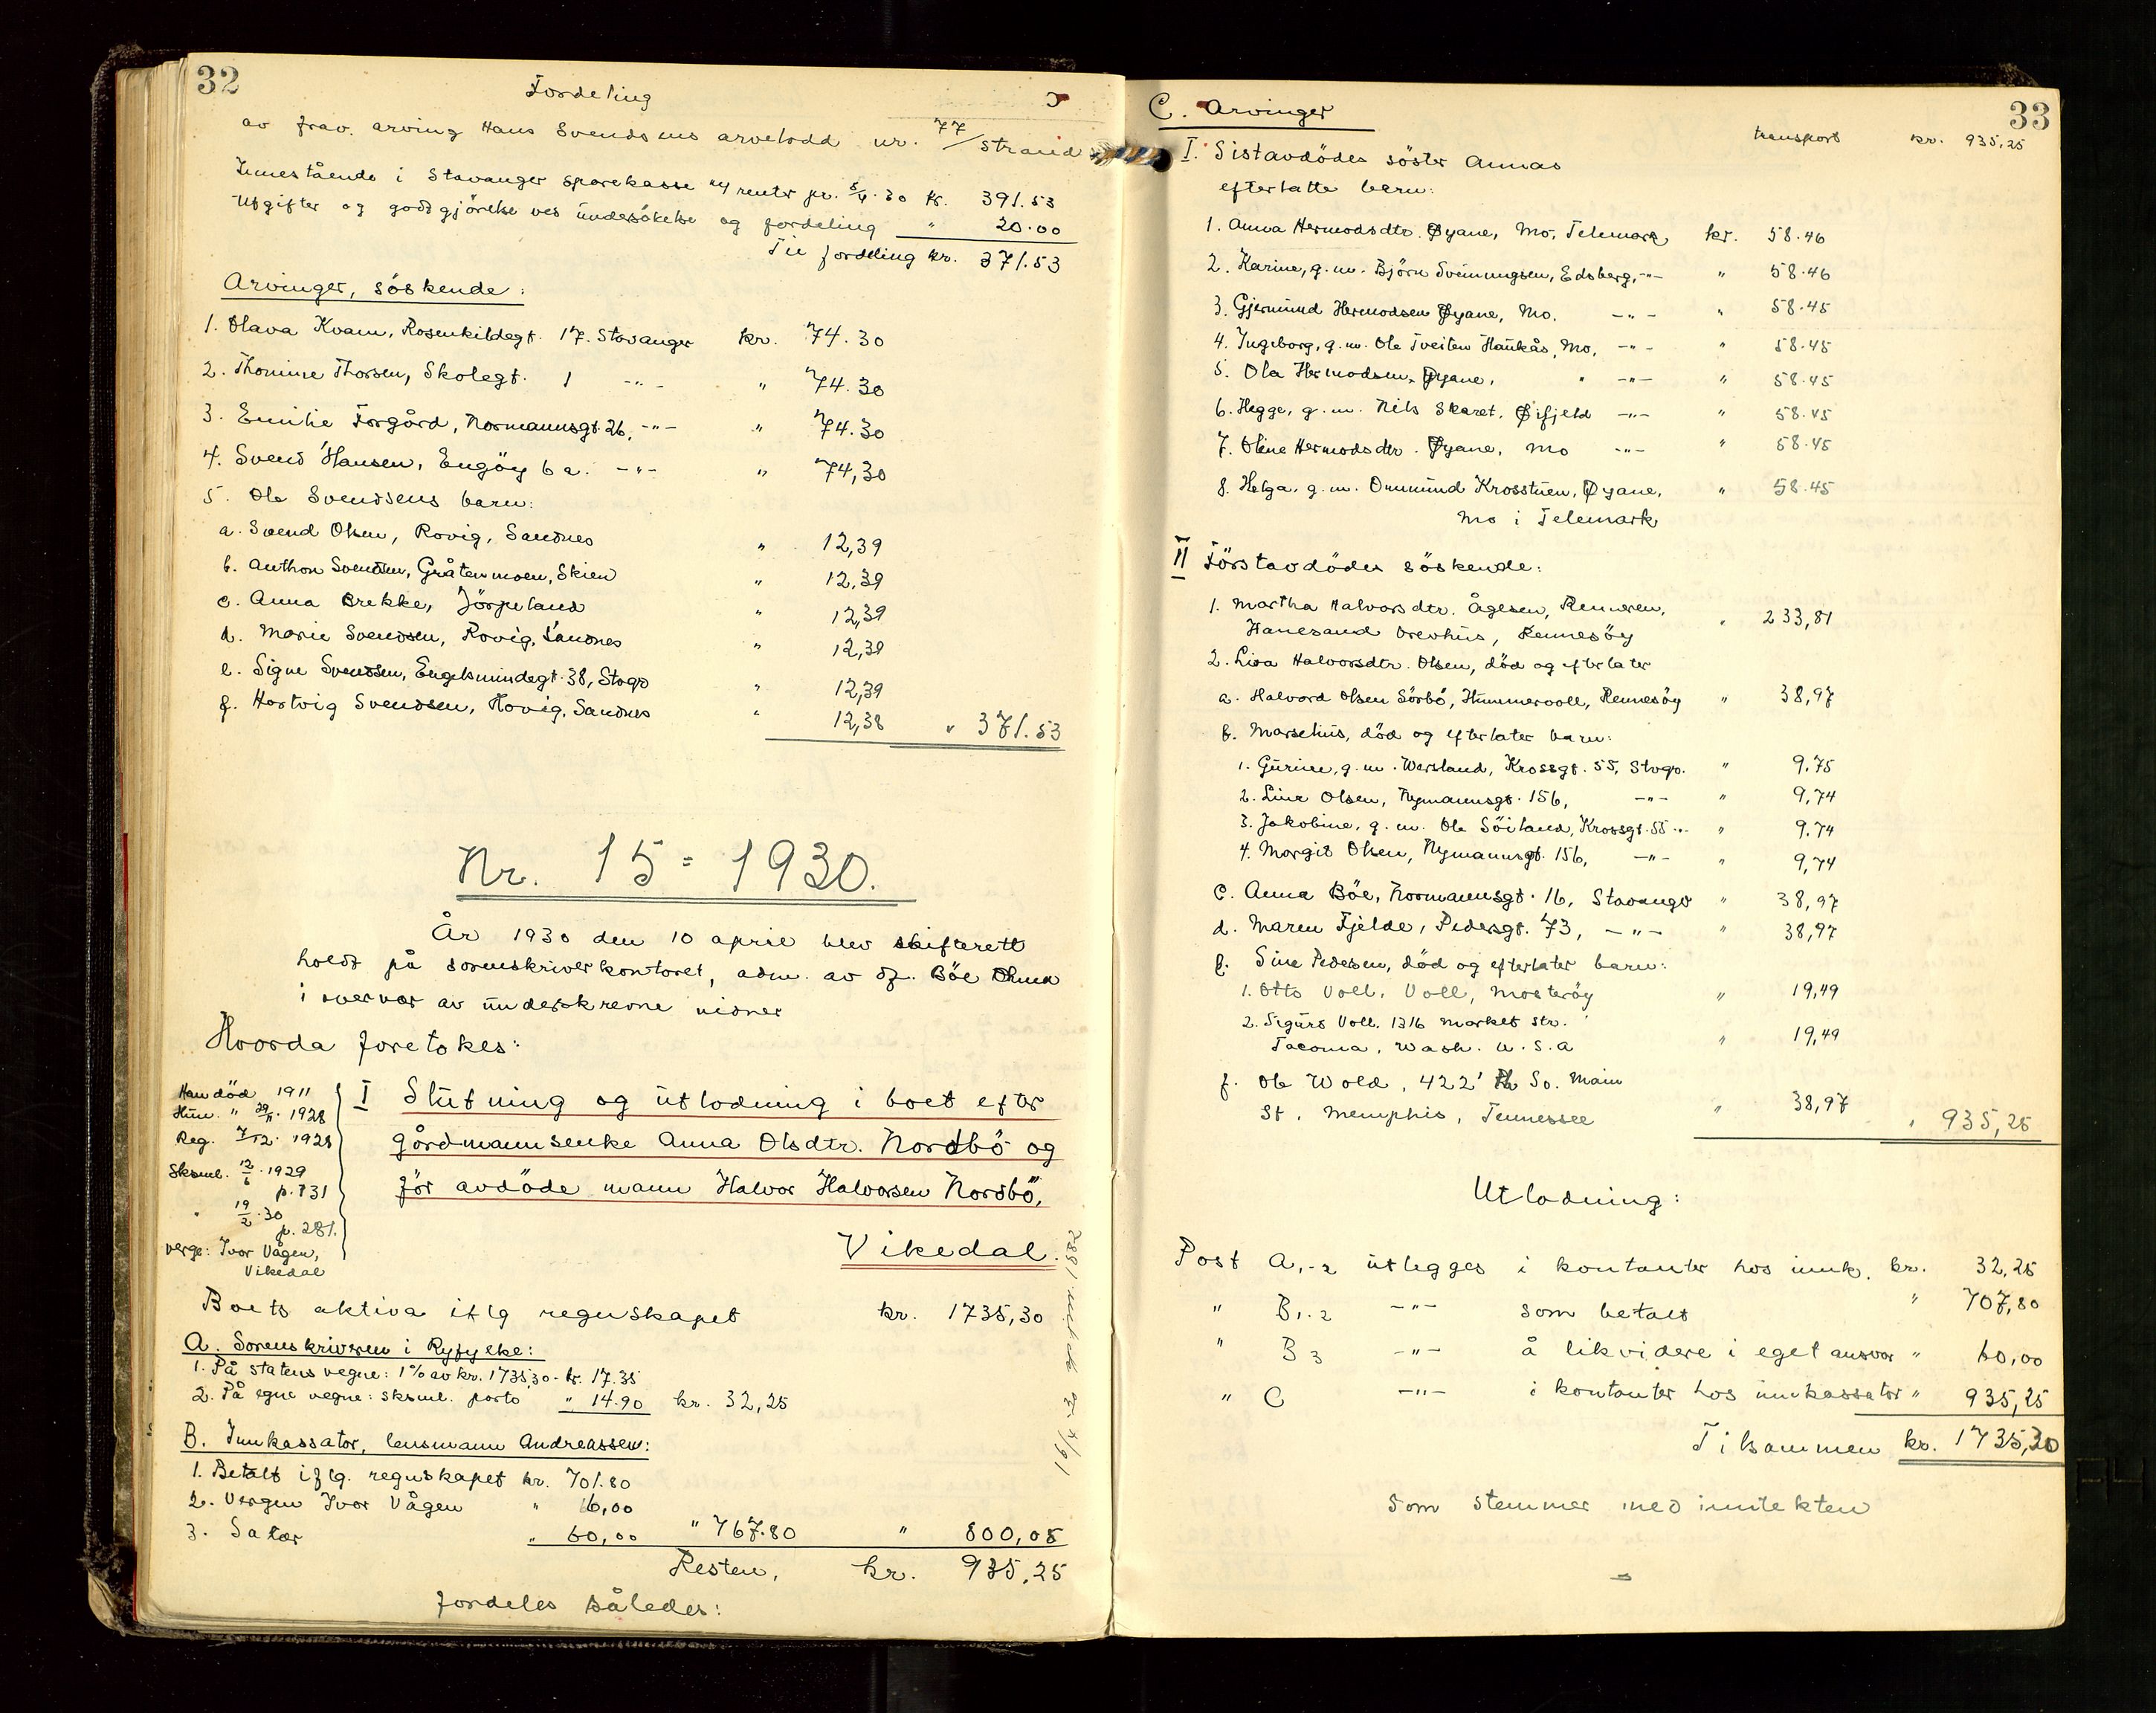 32
Fordeling
av frav. arving Hans Svendsens arvelodd nr. 77/Strand
Innestående i Stavanger Sparekasse m/ renter pr. 5/4.30 kr. 391.53
Utgifter og godtgjörelse ved undersökelse og fordeling " 20.00
Til fordeling kr. 371.53
Arvinger, söskende:
1. Olava Kvam, Rosenkildegt. 17. Stavanger kr. 74.30
2. Thomine Thorsen, Skolegt. 1 -"- " 74.30
3. Emilie Forgård, Normannsgt. 26, -"- " 74.30
4. Svend Hansen, Engöy 6 a. -"- " 74,30
5. Ole Svendsens barn:
a. Svend Olsen, Rovig, Sandnes " 12,39
b. Anthon Svendsen, Gråtenmoen, Skien " 12,39
c. Anna Brekke, Jörpeland " 12,39
d. Marie Svendsen, Rovig, Sandnes " 12,39
e. Signe Svendsen, Engelsmindegt. 38, Stvgr " 12,39
f. Hartvig Svendsen, Rovig, Sandnes " 12,38 " 371.53
Nr. 15 = 1930.
År 1930 den 10 april blev skifterett
holdt på sorenskriverkontoret, adm. av df. Böe
i overvær av underskrevne vidner
Hvorda foretokes:
Han död 1911
Hun. " 29/11. 1928
Reg. 7/12. 1928
Sksml. 12/6. 1929
p. 131
" 19/2. 30
p. 281.
verge: Ivar Vågen,
Vikedal
I Slutning og utlodning i boet efter
gårdmannsenke Anna Olsdtr. Nordbö og
för avdöde mann Halvor Halvorsen Nordbö,
Vikedal.
Boets aktiva iflg regnskapet kr. 1735,30
A. Sorenskriveren i Ryfylke:
1. På statens vegne: 1% av kr. 1735,30 - kr. 17.35
2. På egne vegne: sksml. porto " 14.90 kr. 32,25
B. Innkassator, lensmann Andreassen:
1. Betalt iflg. regnskapet kr. 701.80
2. Vergen Ivar Vågen " 6,00
3. Salær " 60,00 " 767.80 " 800,05
Resten, kr. 935,25
fordeles således:
33
C. Arvinger
transport kr. 935,25
I. Sistavdödes söster Annas
efterlatte barn:
1. Anna Hermodsdtr. Øyane, Mo, Telemark kr. 58.46
2. Karine, g. m. Björn Sveinungsen, Edsberg, -"- " 58.46
3. Gjermund Hermodsen Øyane, Mo. -"- " 58.45
4. Ingeborg, g. m. Ole Tveiten Haukås, Mo, -"- " 58.45
5. Ola Hermodsen Øyane, " -"- " 58.45
6. Hegge, g. m. Nils Skaret, Øifjeld -"- " 58.45
7. Oline Hermodsdtr. Øyane, Mo -"- " 58.45
8. Helga, g. m. Ommund Krosstuen, Øyane, " 58.45
Mo i Telemark
II Förstavdödes söskende:
1. Martha Halvorsdtr. Ågesen, Renneren,
Hanesand Brevhus, Rennesöy " 233,81
2. Lisa Halvorsdtr. Olsen, död og efterlater
a. Halvard Olsen Sörbö, Hummervoll, Rennesöy " 38,97
b. Marselius, död og efterlater barn:
1. Gurine, g. m. Wersland, Krossgt. 55, Stvgr. " 9,75
2. Line Olsen, Nymannsgt. 156, -"- " 9,74
3. Jakobine, g. m. Ole Söiland, Krossgt. 55 -"- " 9,74
4. Margit Olsen, Nymannsgt. 156, -"- " 9,74
c. Anna Böe, Normannsgt. 16, Stavanger " 38,97
d. Maren Fjelde, Pedersgt. 73, -"- " 38,97
e. Sine Pedersen, död og efterlater barn:
1. Otto Voll, Voll, Mosteröy " 19,49
2. Sigurd Voll. 1316 Market Str.
Tacoma, Wash. U.S.A " 19,49
f. Ole Wold, 422' So. Main
St, Memphis, Tennessee " 38,97 " 935,25
Utlodning:
Post A,-2 utlegges i kontanter hos innk. kr. 32,25
" B1-2 -"- som betalt " 707,80
" B3 -"- å likvidere i eget ansvar " 60,00
" C -"- i kontanter hos innkassator " 935,25
Tilsammen kr. 1735,30
Som stemmer med inntekten